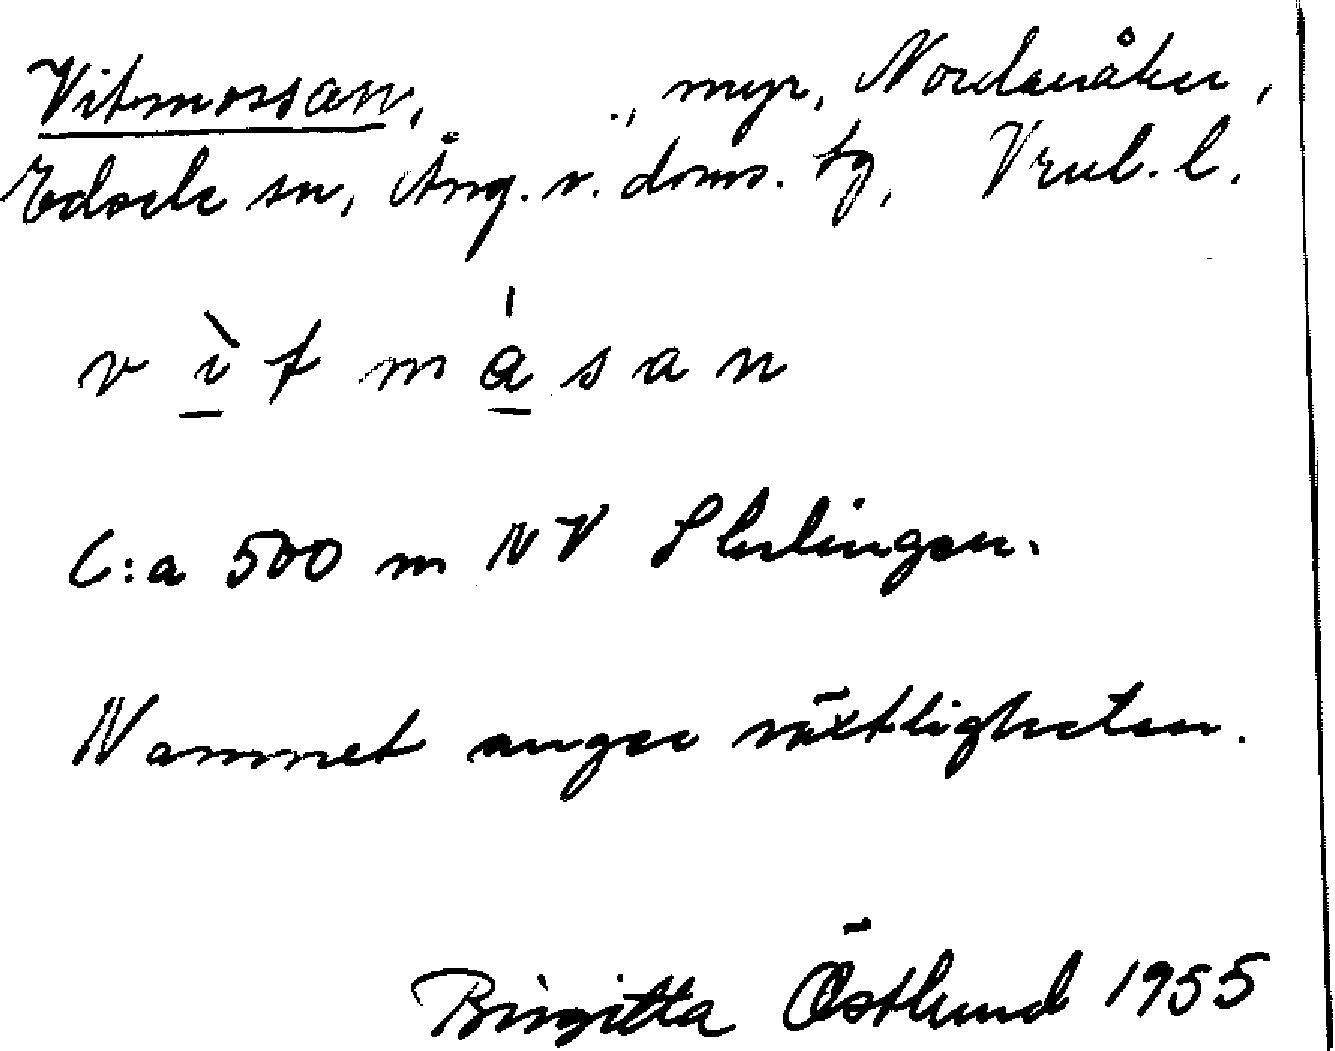 Vitmossan, ., myr, Nordanåker,
Edsele sn, Ång. v. doms. tg, Vnl. l.
v ì t m ǻ s a n
C:a 500 m NV
Namnet anger växtligheten.
Birgitta Östlund 1955